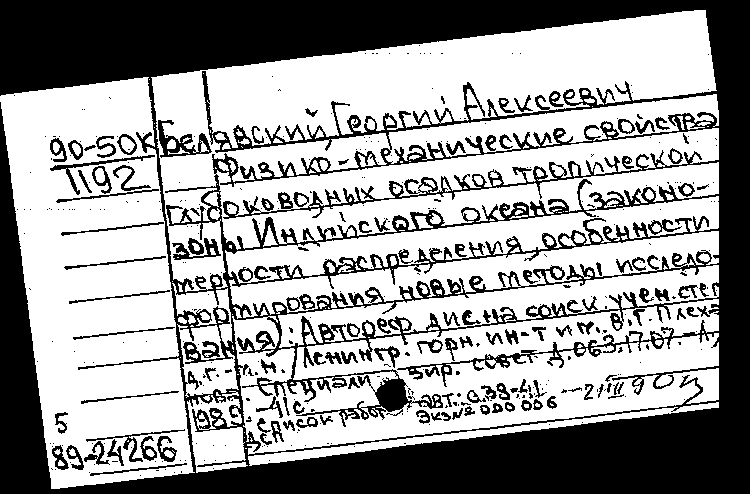 90-50К Белявский, Георгий Алексеевич
1192 Физико-механические свойства
глубоководных осадков тропической
зоны Индийского океана (законо-
мерности распределения, особенности
формирования, новые методы исследо-
вания): Автореф. дис. на соиск. учен. степ
д.г.-м.н. / Ленингр. горн. ин-т им. Г.В. Плеха
нова. Специали зир. совет Д.063.17.07.-Л.,
1989.-41с.
список работ авт.: с.39-41
ДСП Экз№ 000 006 21 III 90
5
89-24266